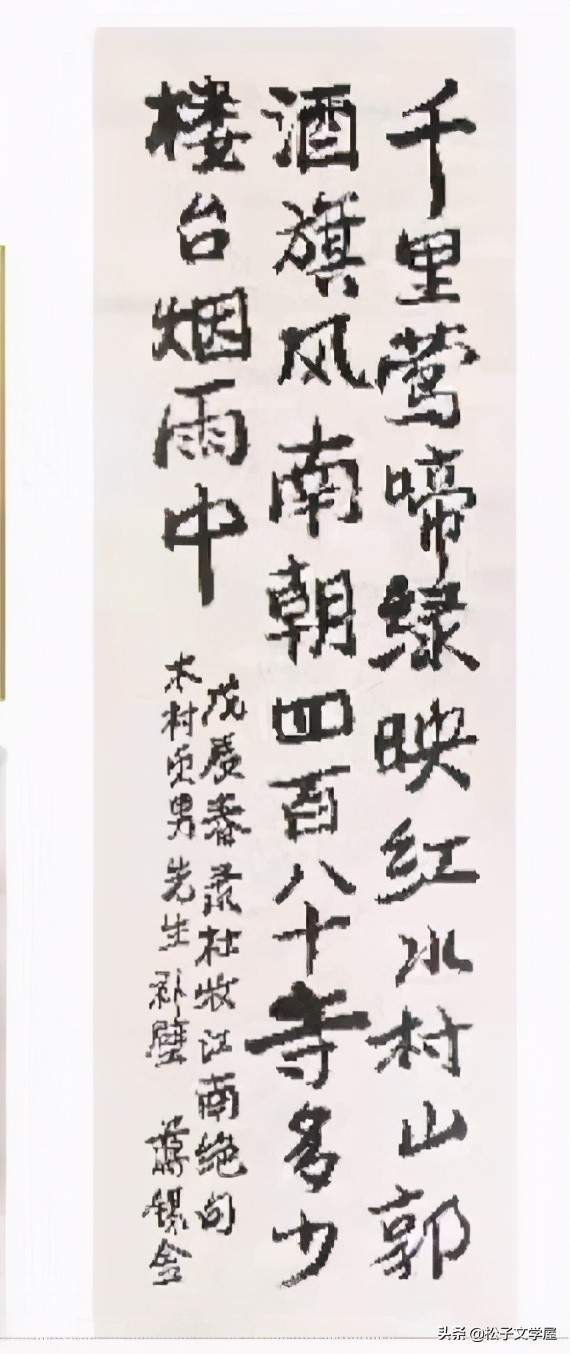 千里莺啼绿映红水村山郭
酒旗风南朝四百八十寺多少
楼台烟雨中
戊辰春录杜牧江南绝句
木村重男先生补壁 蒋锡金
头条 @松子文学屋